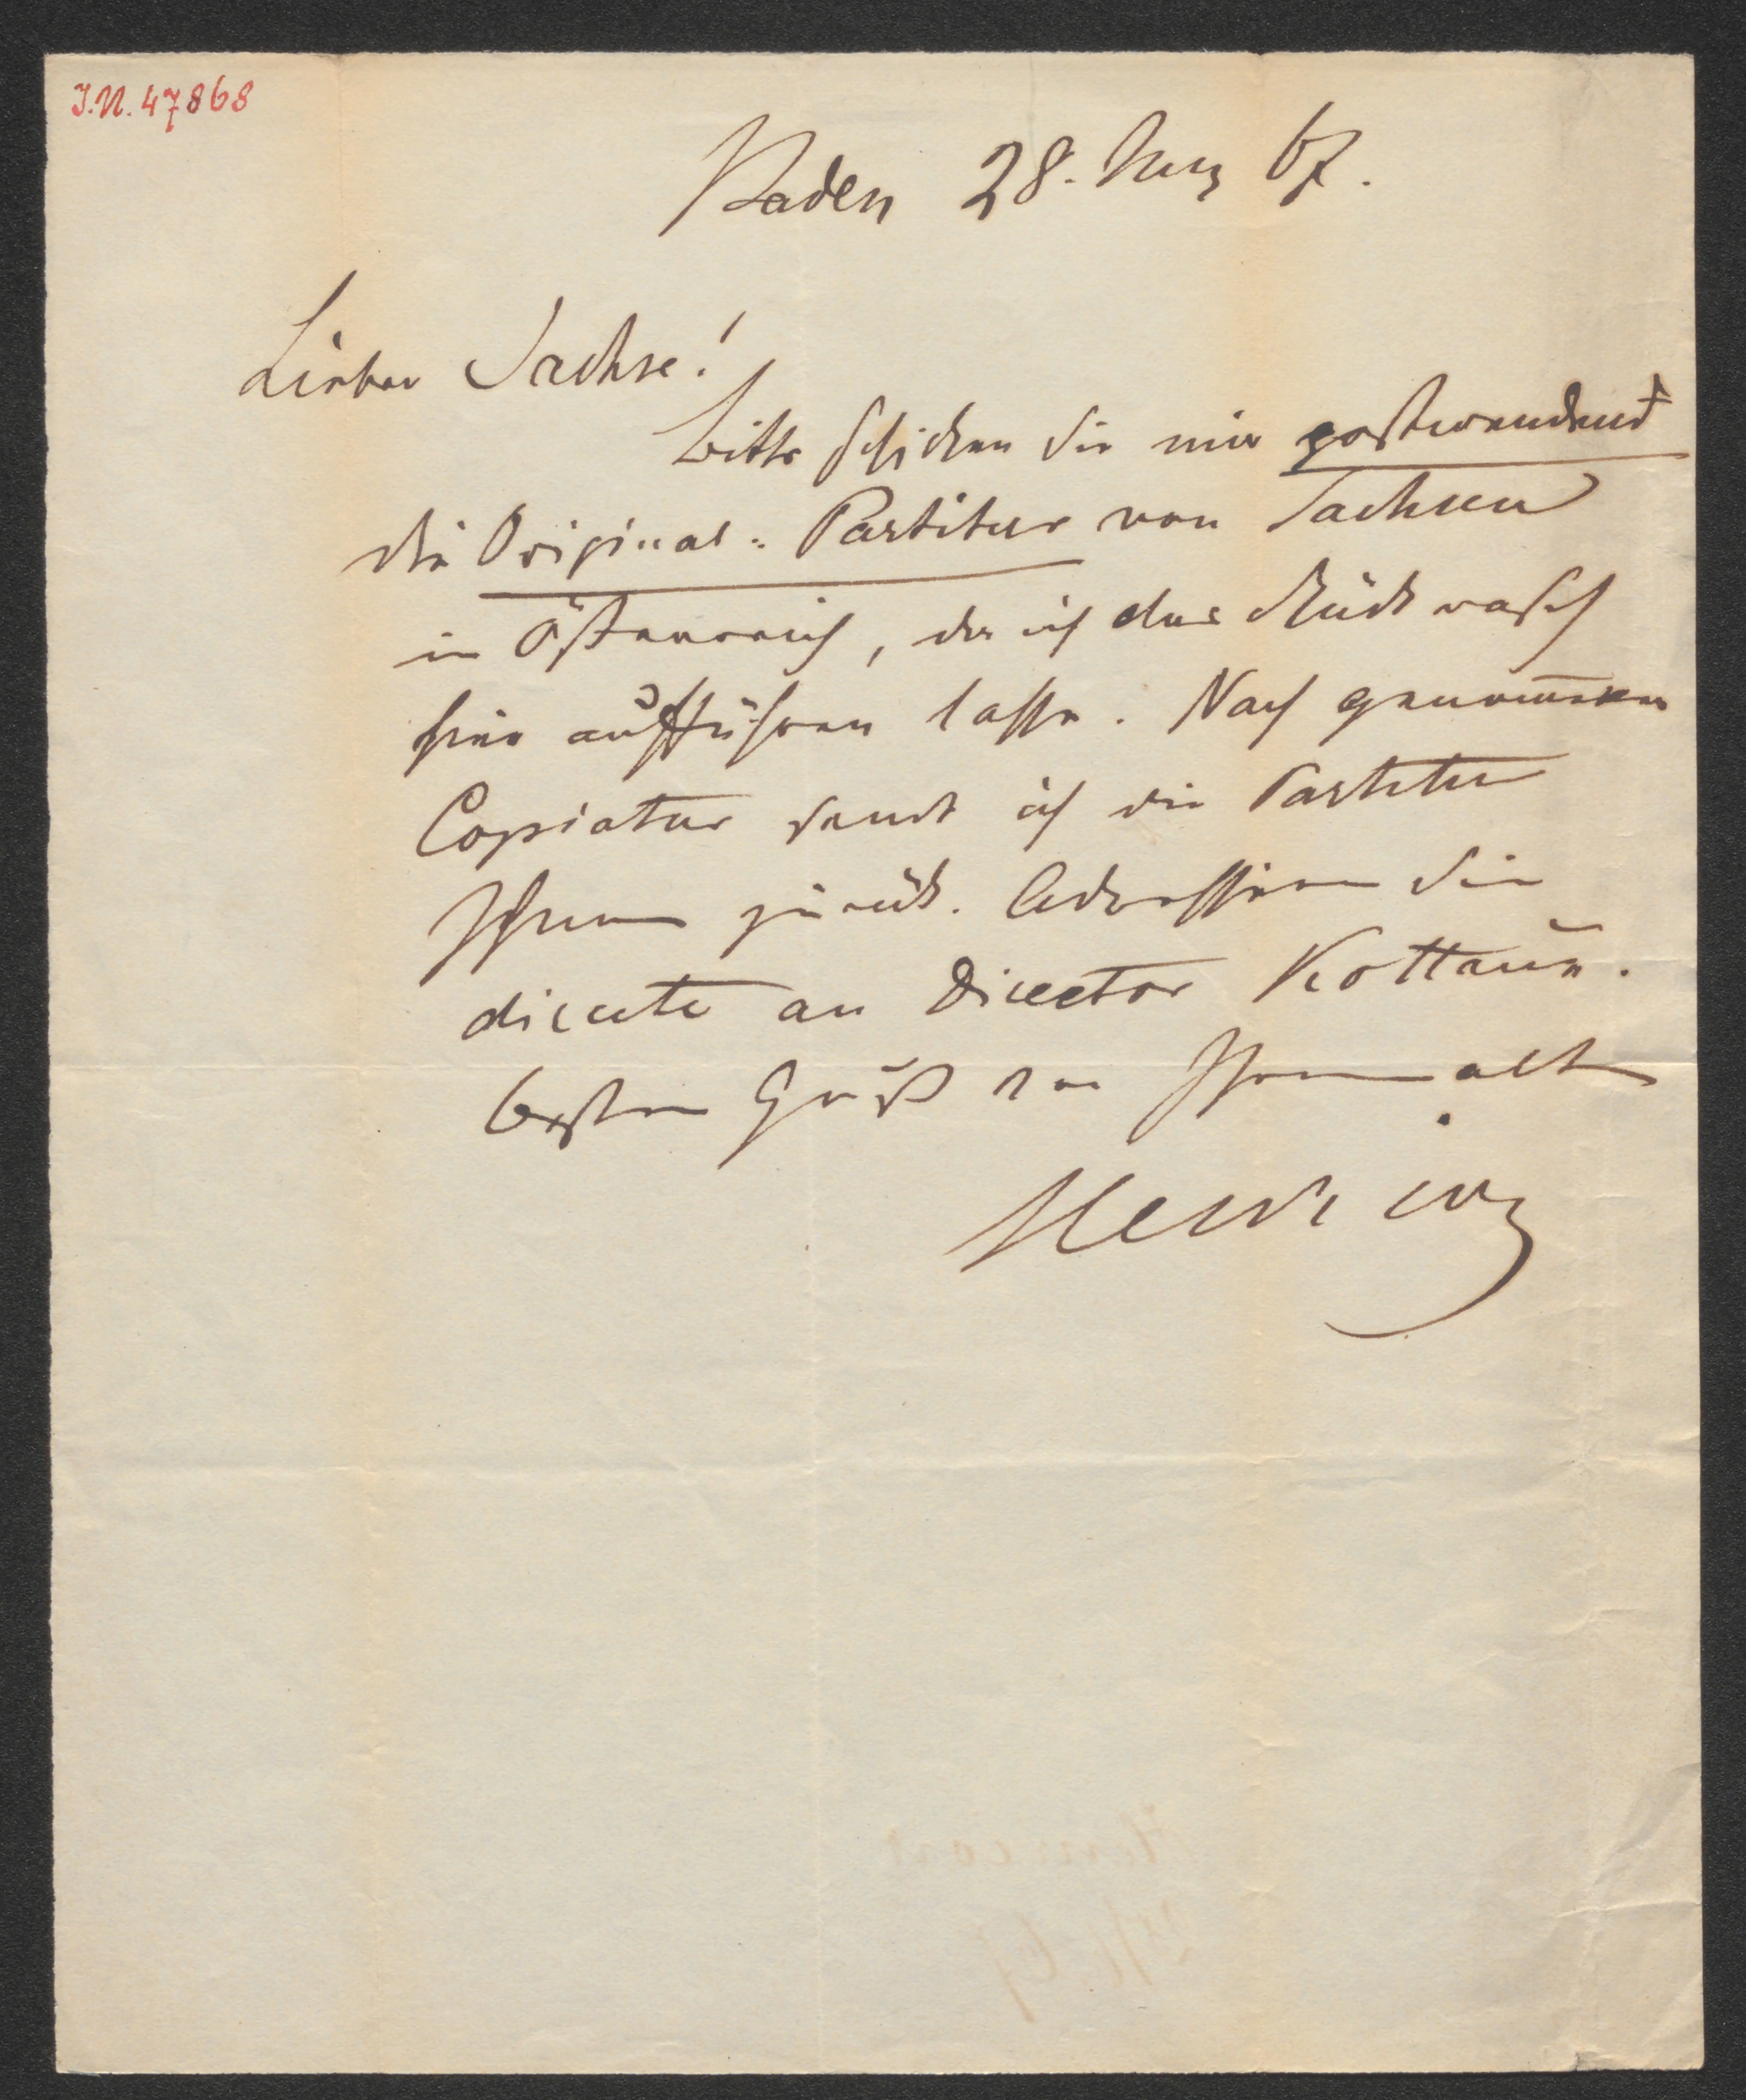 I.N. 47868
Baden 28. Aug 67.
Lieber Sachse!
bitte schicken Sie mir postwendend
die Original-Partitur von Sachsen
in Österreich, da ich das Stück rasch
hier aufführen lasse. Nach genommener
Copiatur send ich die Partitur
Ihnen zurück. Adressiren Sie
directe an Director Kottaun.
besten Gruß von Ihrem alten